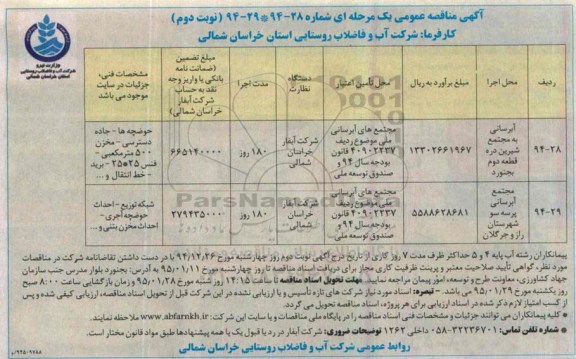 آگهی مناقصه عمومی یک مرحله ای شماره ۲۸-۹۴ * ۲۹-۹۴ (نوبت دوم)
کارفرما: شرکت آب و فاضلاب روستایی استان خراسان شمالی
وزارت نیرو
شرکت آب و فاضلاب روستایی
استان خراسان شمالی
ردیف
محل اجرا
مبلغ برآورد به ریال
محل تأمین اعتبار
دستگاه نظارت
مدت اجرا
مبلغ تضمین (ضمانت نامه بانکی یا واریز وجه نقد به حساب شرکت آبفار خراسان شمالی)
مشخصات فنی، جزئیات در سایت موجود می باشد
۹۴-۲۸
آبرسانی به مجتمع شیرین دره قطعه دوم بجنورد
۱۳۳۰۲۶۶۱۹۶۷
مجتمع های آبرسانی ملی موضوع ردیف ۴۰۹۰۲۲۳۷ قانون بودجه سال ۹۴ و صندوق توسعه ملی
شرکت آبفار خراسان شمالی
۱۸۰ روز
۶۶۵۱۴۰۰۰۰
حوضچه ها - جاده دسترسی - مخزن ۵۰۰ مترمکعبی - فنس ۲۵*۲۵ - برید - خط انتقال و ...
۹۴-۲۹
مجتمع آبرسانی پرسه سو شهرستان راز و جرگلان
۵۵۸۸۶۲۸۶۸۱
مجتمع های آبرسانی ملی موضوع ردیف ۴۰۹۰۲۲۳۷ قانون بودجه سال ۹۴ و صندوق توسعه ملی
شرکت آبفار خراسان شمالی
۱۸۰ روز
۲۷۹۴۳۵۰۰۰
شبکه توزیع - احداث حوضچه آجری - احداث مخزن بتنی و...
پیمانکاران رشته آب پایه ۴ و ۵ حداکثر ظرف مدت ۷ روز کاری از تاریخ درج آگهی نوبت دوم روز چهارشنبه مورخ ۹۴/۱۲/۲۶ با در دست داشتن تقاضانامه شرکت در مناقصات
مورد نظر، گواهی تأیید صلاحیت معتبر و پرینت ظرفیت کاری مجاز برای دریافت اسناد مناقصه تا روز چهارشنبه مورخ ۹۵/۰۱/۱۱ به آدرس: بجنورد بلوار مدرس جنب سازمان
جهاد کشاورزی، معاونت طرح و توسعه امور پیمان مراجعه نمایند. مهلت تحویل اسناد مناقصه تا ساعت ۱۴:۱۵ روز شنبه مورخ ۹۵/۰۱/۲۸ و زمان بازگشایی ساعت ۸:۰۰ صبح
روز یکشنبه مورخ ۹۵/۰۱/۲۹ می باشد. تبصره: اسناد مورد نیاز شرکت های تازه تأسیس و یا ارزیابی نشده در این شرکت قبل از تحویل اسناد مناقصه، ارزیابی کیفی شده و پس
از کسب امتیاز لازم ذکر شده در اسناد ارزیابی برای هر پروژه، اسناد مناقصه تحویل می گردد.
کلیه پیمانکاران می توانند جزئیات و مشخصات فنی اسناد مناقصه را در پایگاه ملی مناقصات و یا سایت این شرکت www.abfarnkh.ir ملاحظه نمایند.
شماره تلفن تماس: ۳۲۲۳۶۷۰۱-۰۵۸ داخلی ۱۲۶۲ توضیحات ضروری: شرکت آبفار در رد یا قبول یک یا همه پیشنهادها طبق مواد قانون مختار است.
روابط عمومی شرکت آب و فاضلاب روستایی خراسان شمالی